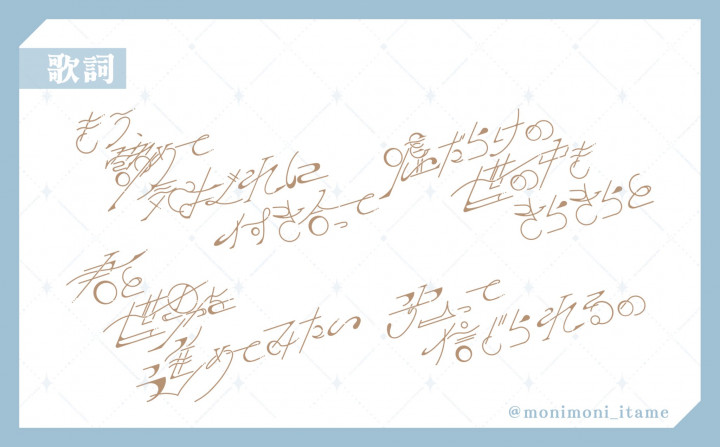 歌詞
もう、諦めて
気まぐれに
付き合って
嘘だらけの
世の中も
きらきらと
君と
世界を
進めてみたい
笑って
信じられるの
@monimoni_itame